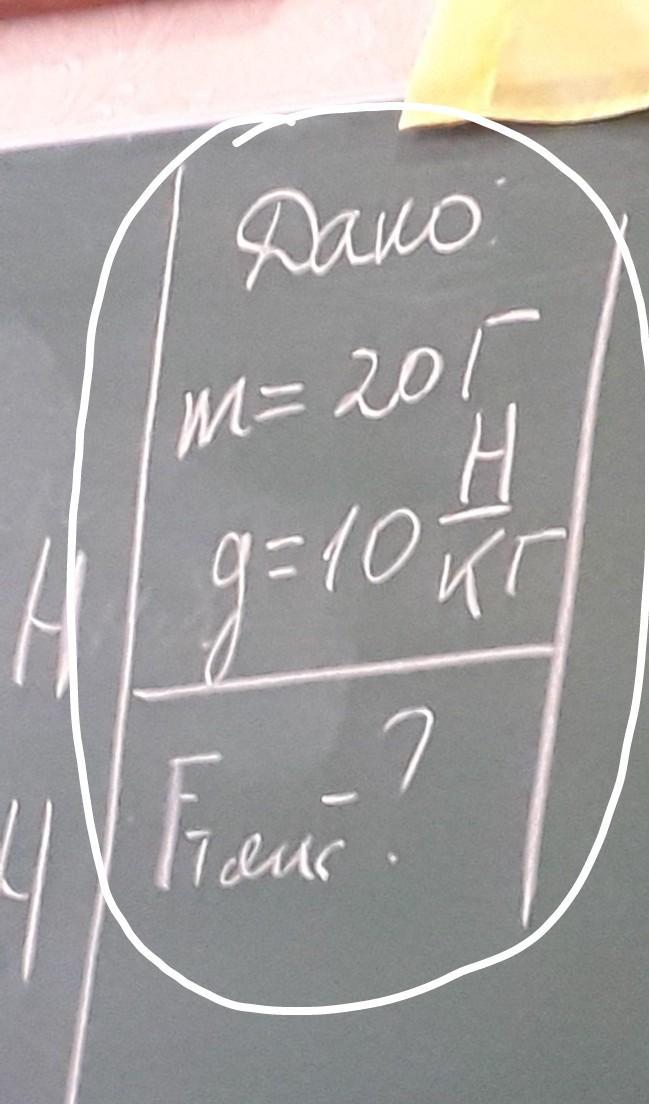 Дано:
m = 20 г
g = 10 Н/кг
Fтяж - ?
Н
Н